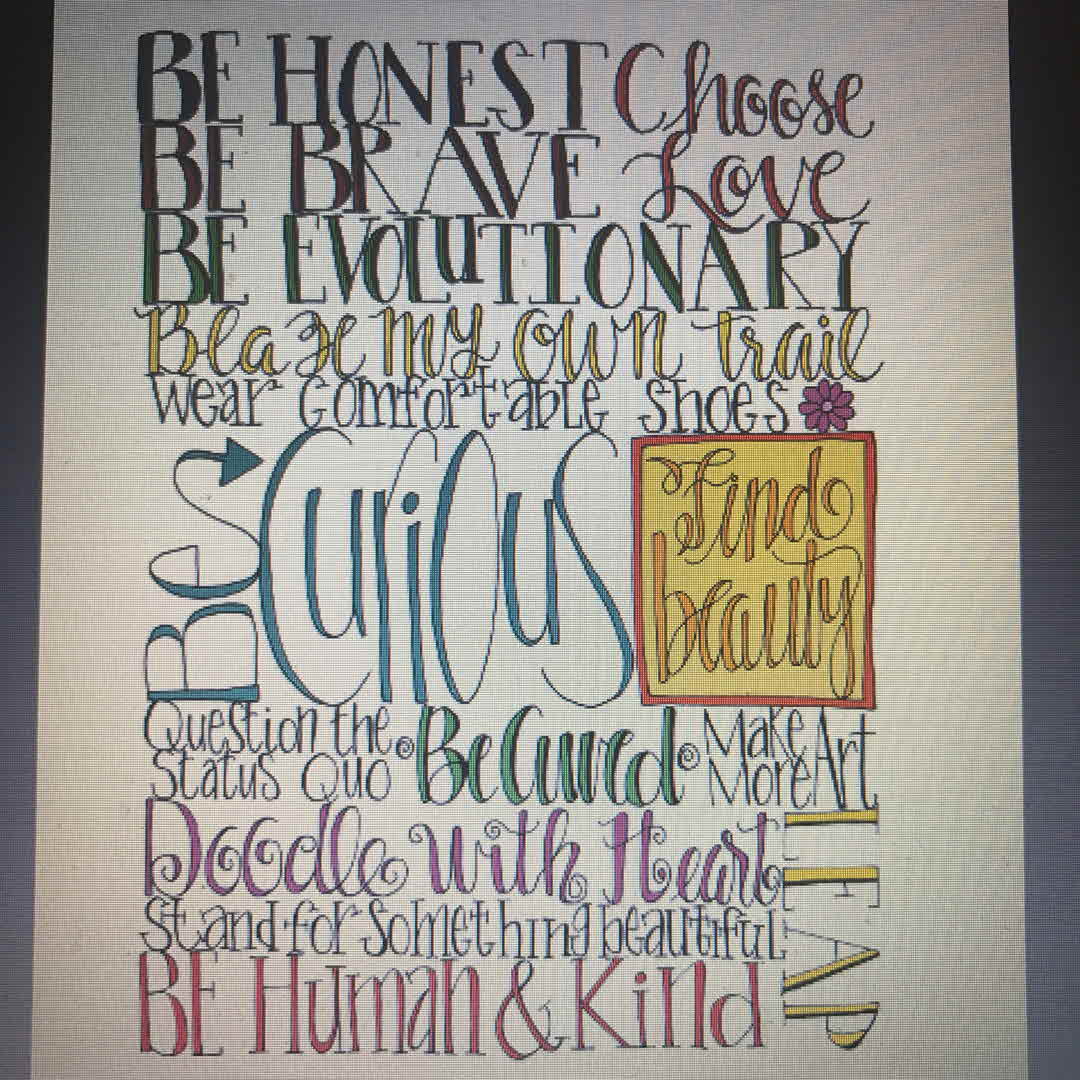 BE HONEST Choose
BE BRAVE Love
BE EVOLuTIONARY
Blaze my own trail
wear comfortable shoes
Be Curious
Find
beauty
Question the
Status Quo
Be
Make
More Art
Doodle with Heart
LEAP
Stand for something beautiful
BE Human & Kind